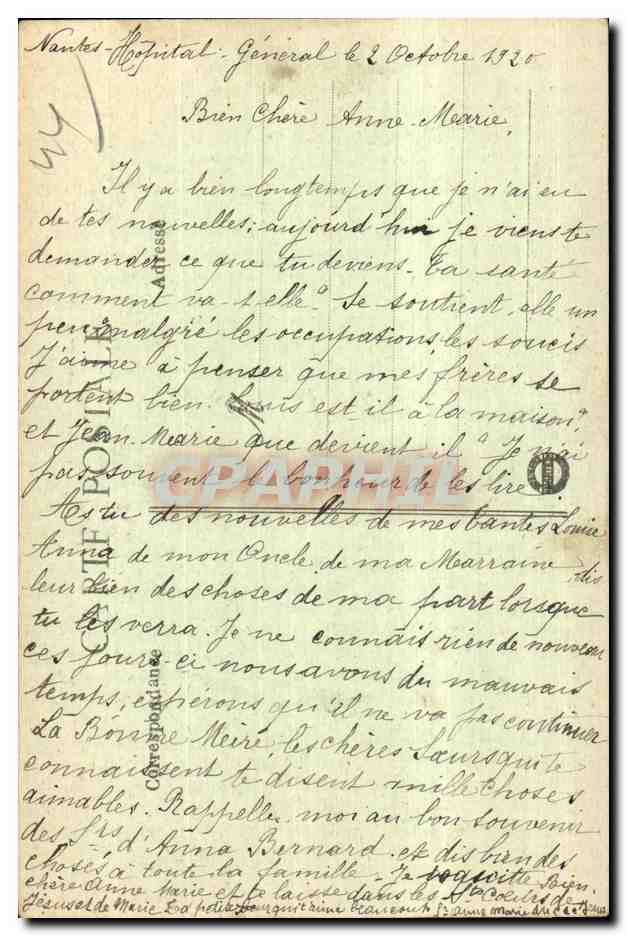 Nantes - Hôpital - Général le 2 Octobre 1920
Bien Chère Anne-Marie,
Il y a bien longtemps que je n'ai eu
de tes nouvelles; aujourd'hui je viens te
demander ce que tu deviens. Ta santé
comment va-t-elle? Se soutient-elle un
peu malgré les occupations, les soucis
J'aime à penser que mes frères se
portent bien. Louis est-il à la maison?
et Jean-Marie que devient il? Je n'ai
pas souvent le bonheur de les lire.
As tu des nouvelles de mes tantes Louise
Anna de mon Oncle, de ma Marraine, dis
leur bien des choses de ma part lorsque
tu les verra. Je ne connais rien de nouveau
ces jours-ci nous avons du mauvais
temps, espérons qu'il ne va pas continuer
La Bonne Mère, les chères Sœurs qui te
connaissent te disent mille choses
aimables. Rappelle moi au bon souvenir
des frs d'Anna Bernard et dis bien des
choses à toute la famille. Je Bien
chère Anne Marie et te laisse dans les Sts Cœurs de
Jésus et de Marie La petite sœur qui t'aime beaucoup Sr Anne Marie du
CARTE POSTALE
Correspondance
Adresse
CPAPHIL